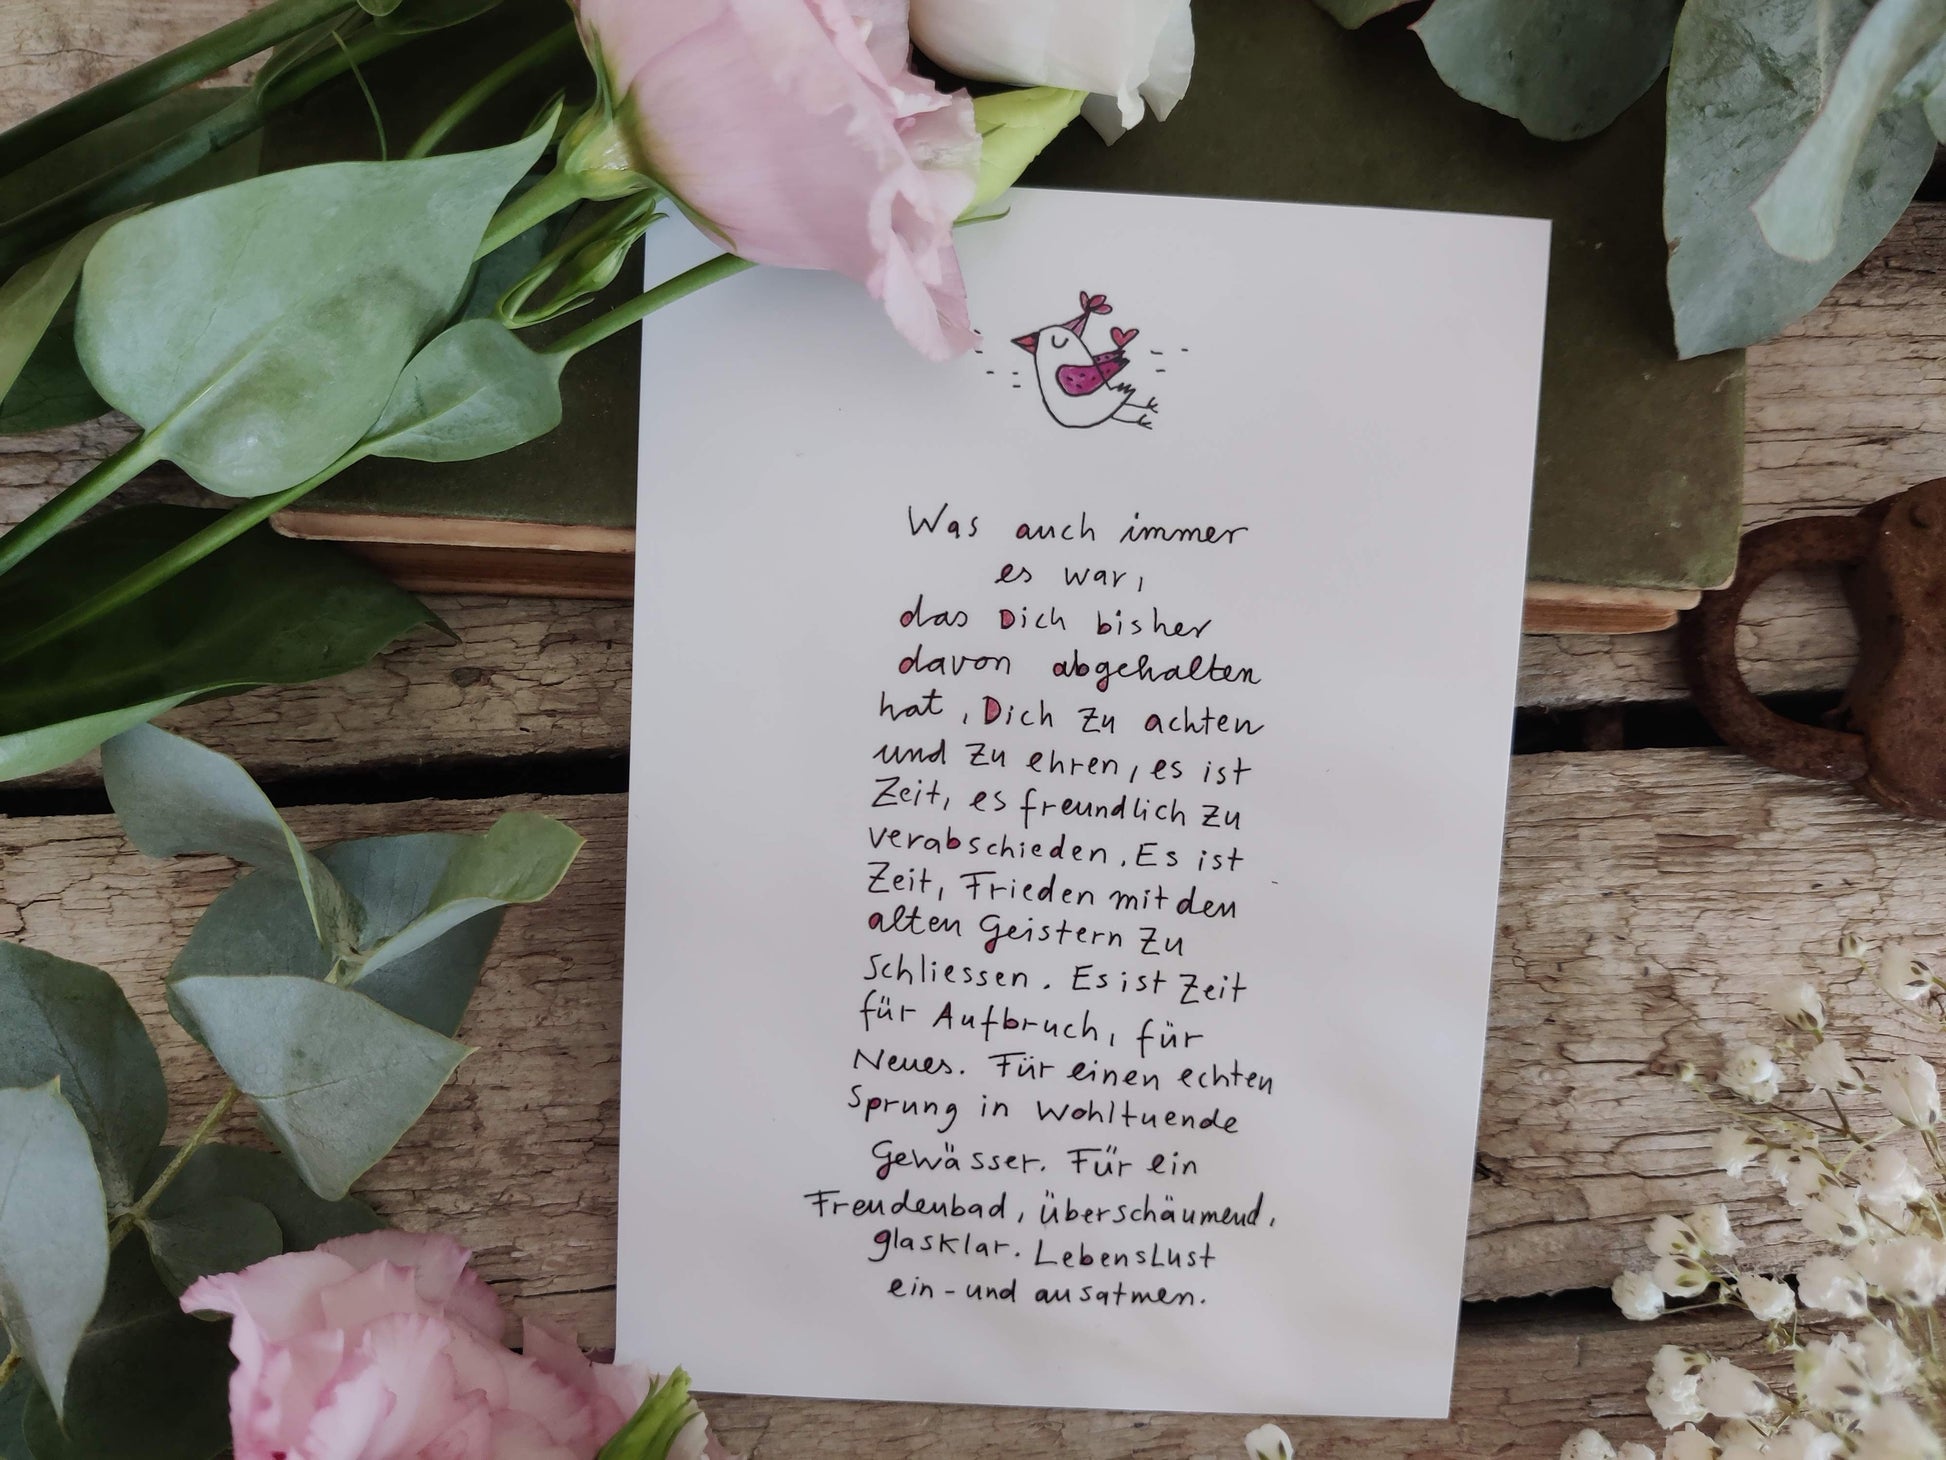 Was auch immer
es war,
das Dich bisher
davon abgehalten
hat, Dich zu achten
und zu ehren, es ist
Zeit, es freundlich zu
verabschieden. Es ist
Zeit, Frieden mit den
alten Geistern zu
schliessen. Es ist Zeit
für Aufbruch, für
Neues. Für einen echten
Sprung in wohltuende
Gewässer. Für ein
Freudenbad, überschäumend,
glasklar. LebensLust
ein- und ausatmen.